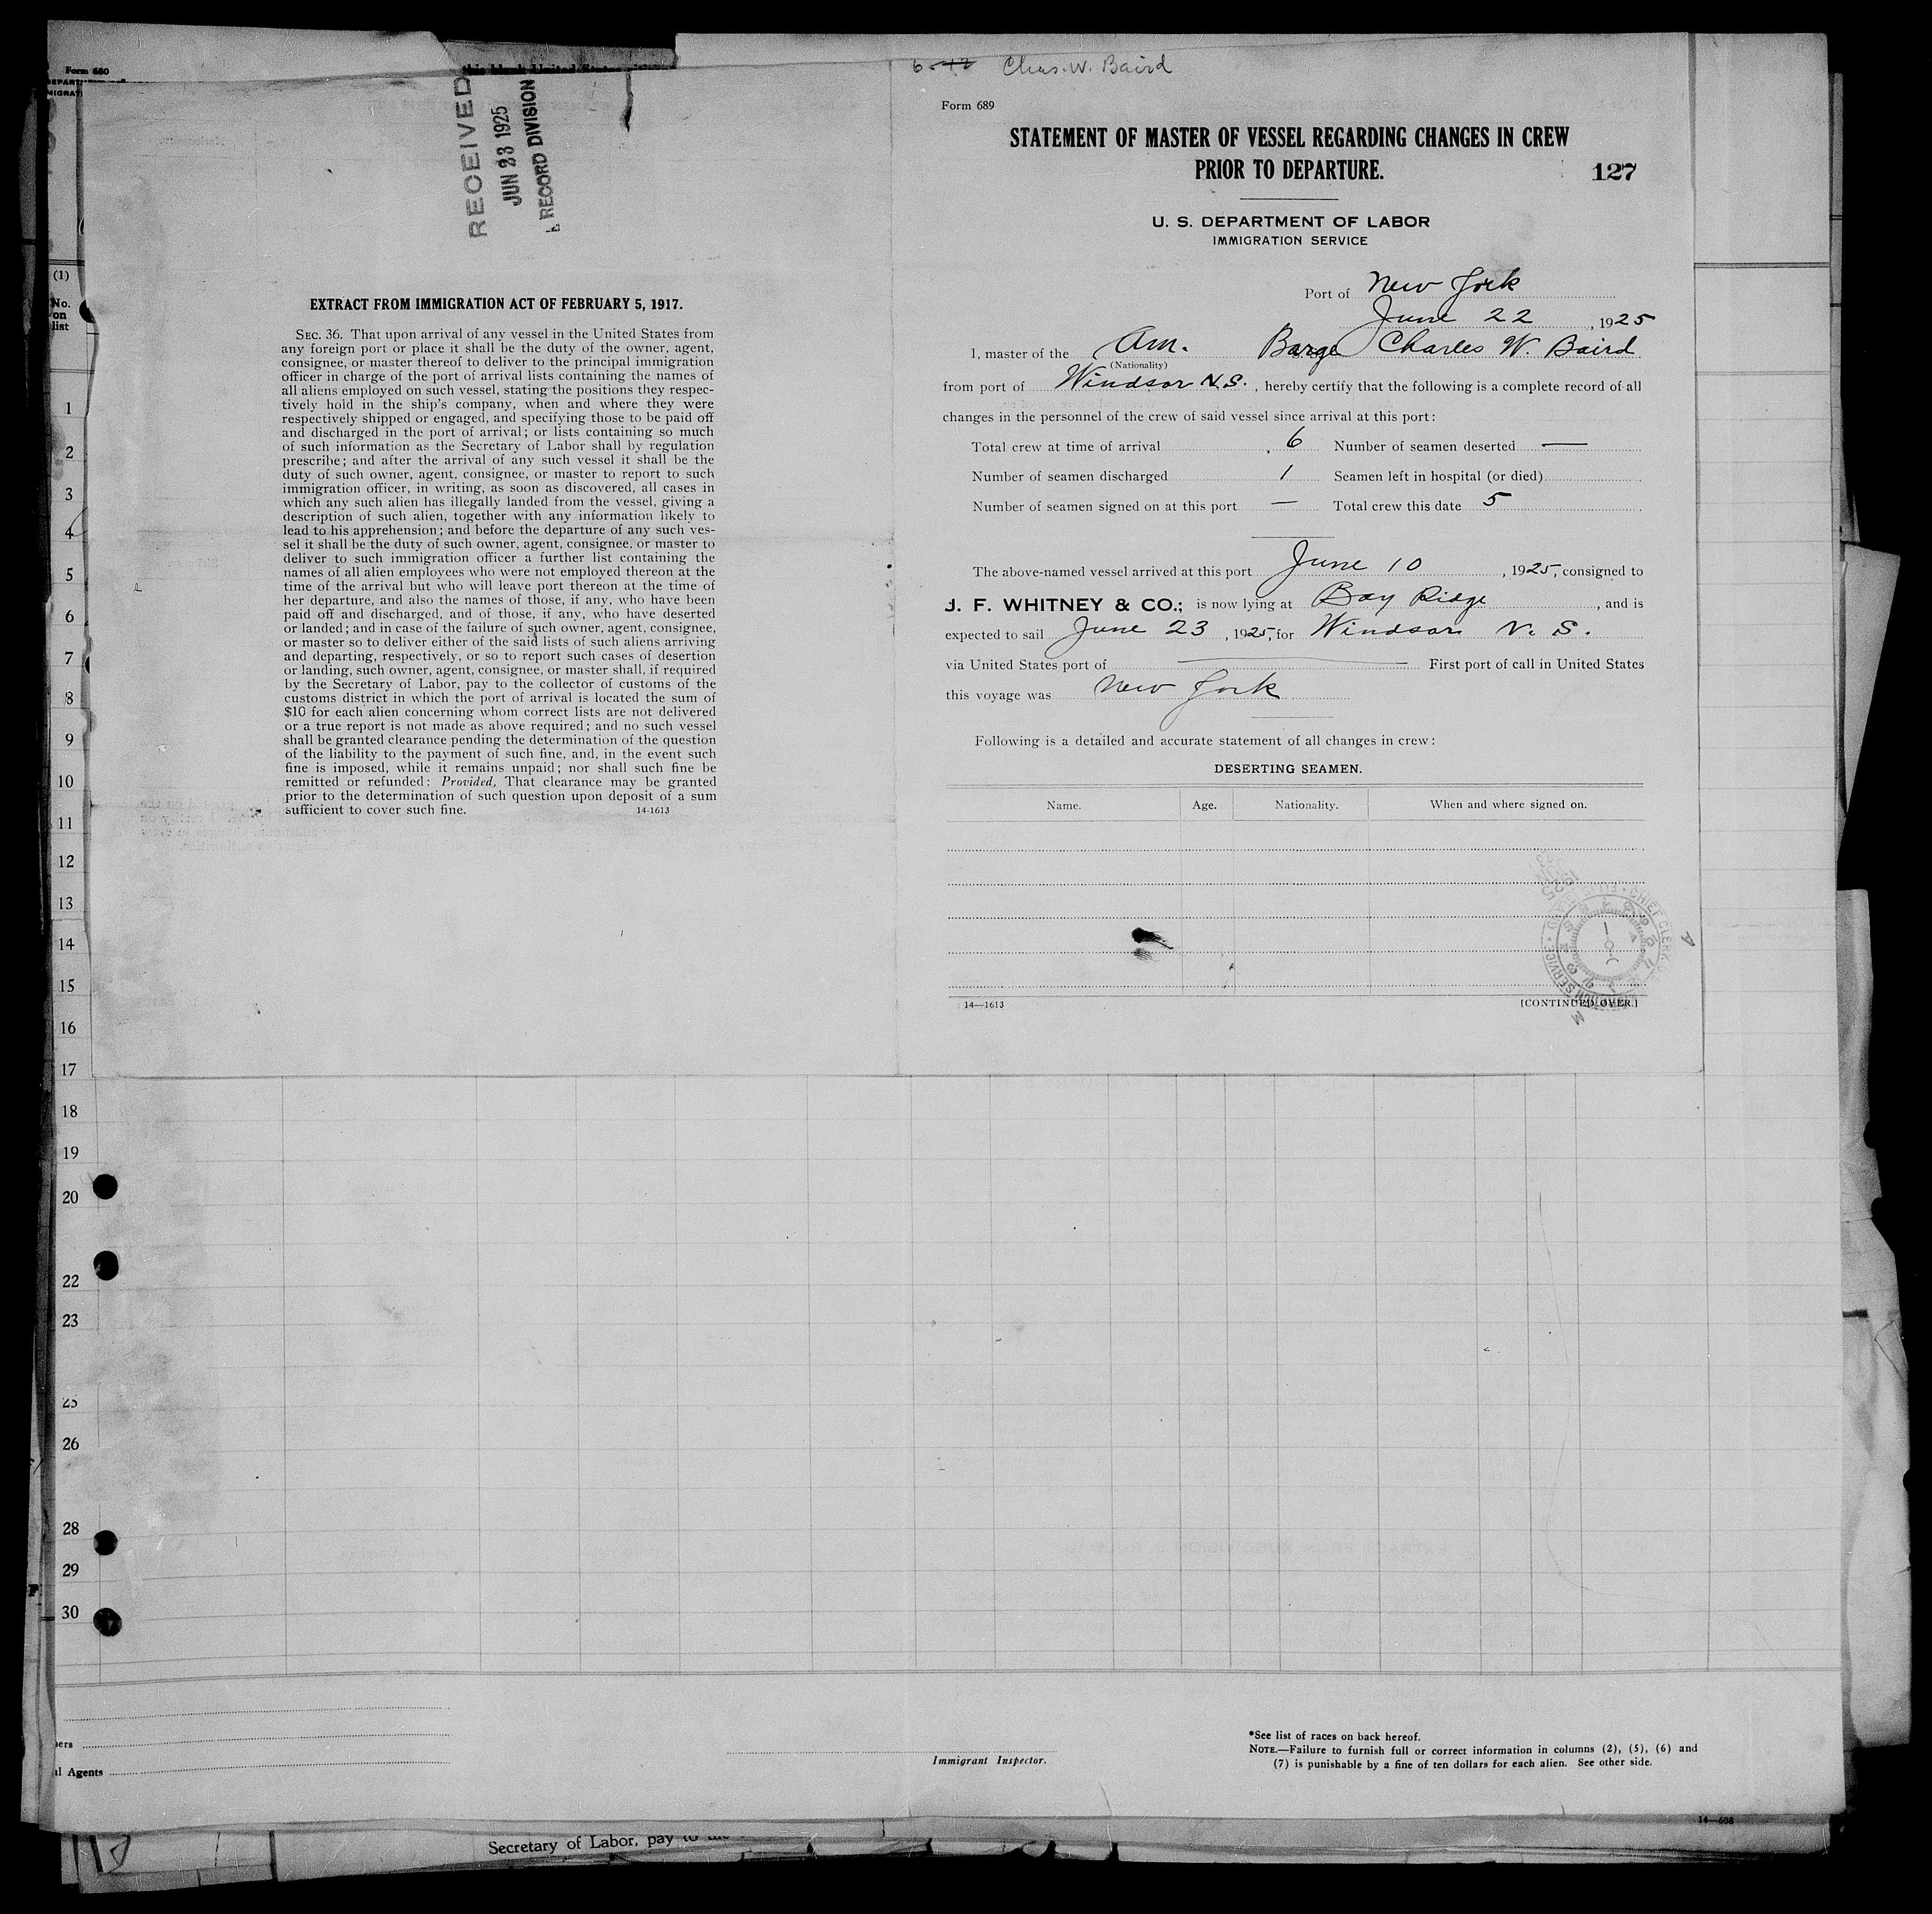 Form 680
RECEIVED
JUN 23 1925
RECORD DIVISION
(1)
No.
on
list
1
2
3
4
5
6
7
8
9
10
11
12
13
14
15
16
17
18
19
20
22
23
25
26
28
29
30
EXTRACT FROM IMMIGRATION ACT OF FEBRUARY 5, 1917.
SEC. 36. That upon arrival of any vessel in the United States from
any foreign port or place it shall be the duty of the owner, agent,
consignee, or master thereof to deliver to the principal immigration
officer in charge of the port of arrival lists containing the names of
all aliens employed on such vessel, stating the positions they respec-
tively hold in the ship's company, when and where they were
respectively shipped or engaged, and specifying those to be paid off
and discharged in the port of arrival; or lists containing so much
of such information as the Secretary of Labor shall by regulation
prescribe; and after the arrival of any such vessel it shall be the
duty of such owner, agent, consignee, or master to report to such
immigration officer, in writing, as soon as discovered, all cases in
which any such alien has illegally landed from the vessel, giving a
description of such alien, together with any information likely to
lead to his apprehension; and before the departure of any such ves-
sel it shall be the duty of such owner, agent, consignee, or master to
deliver to such immigration officer a further list containing the
names of all alien employees who were not employed thereon at the
time of the arrival but who will leave port thereon at the time of
her departure, and also the names of those, if any, who have been
paid off and discharged, and of those, if any, who have deserted
or landed; and in case of the failure of such owner, agent, consignee,
or master so to deliver either of the said lists of such aliens arriving
and departing, respectively, or so to report such cases of desertion
or landing, such owner, agent, consignee, or master shall, if required
by the Secretary of Labor, pay to the collector of customs of the
customs district in which the port of arrival is located the sum of
$10 for each alien concerning whom correct lists are not delivered
or a true report is not made as above required; and no such vessel
shall be granted clearance pending the determination of the question
of the liability to the payment of such fine, and, in the event such
fine is imposed, while it remains unpaid; nor shall such fine be
remitted or refunded: Provided, That clearance may be granted
prior to the determination of such question upon deposit of a sum
sufficient to cover such fine. 14-1613
Chas. W. Baird
Form 689
STATEMENT OF MASTER OF VESSEL REGARDING CHANGES IN CREW
PRIOR TO DEPARTURE.
127
U. S. DEPARTMENT OF LABOR
IMMIGRATION SERVICE
Port of New York
June 22, 1925
I, master of the Am. Barge Charles W. Baird
(Nationality)
from port of Windsor N.S., hereby certify that the following is a complete record of all
changes in the personnel of the crew of said vessel since arrival at this port:
Total crew at time of arrival 6 Number of seamen deserted —
Number of seamen discharged 1 Seamen left in hospital (or died)
Number of seamen signed on at this port — Total crew this date 5
The above-named vessel arrived at this port June 10, 1925, consigned to
J. F. WHITNEY & CO.; is now lying at Bay Ridge, and is
expected to sail June 23, 1925, for Windsor N. S.
via United States port of — First port of call in United States
this voyage was New York
Following is a detailed and accurate statement of all changes in crew:
DESERTING SEAMEN.
Name. Age. Nationality. When and where signed on.
14—1613 [CONTINUED OVER.]
Agents
Immigrant Inspector.
*See list of races on back hereof.
NOTE.—Failure to furnish full or correct information in columns (2), (5), (6) and
(7) is punishable by a fine of ten dollars for each alien. See other side.
14—608
Secretary of Labor, pay to the